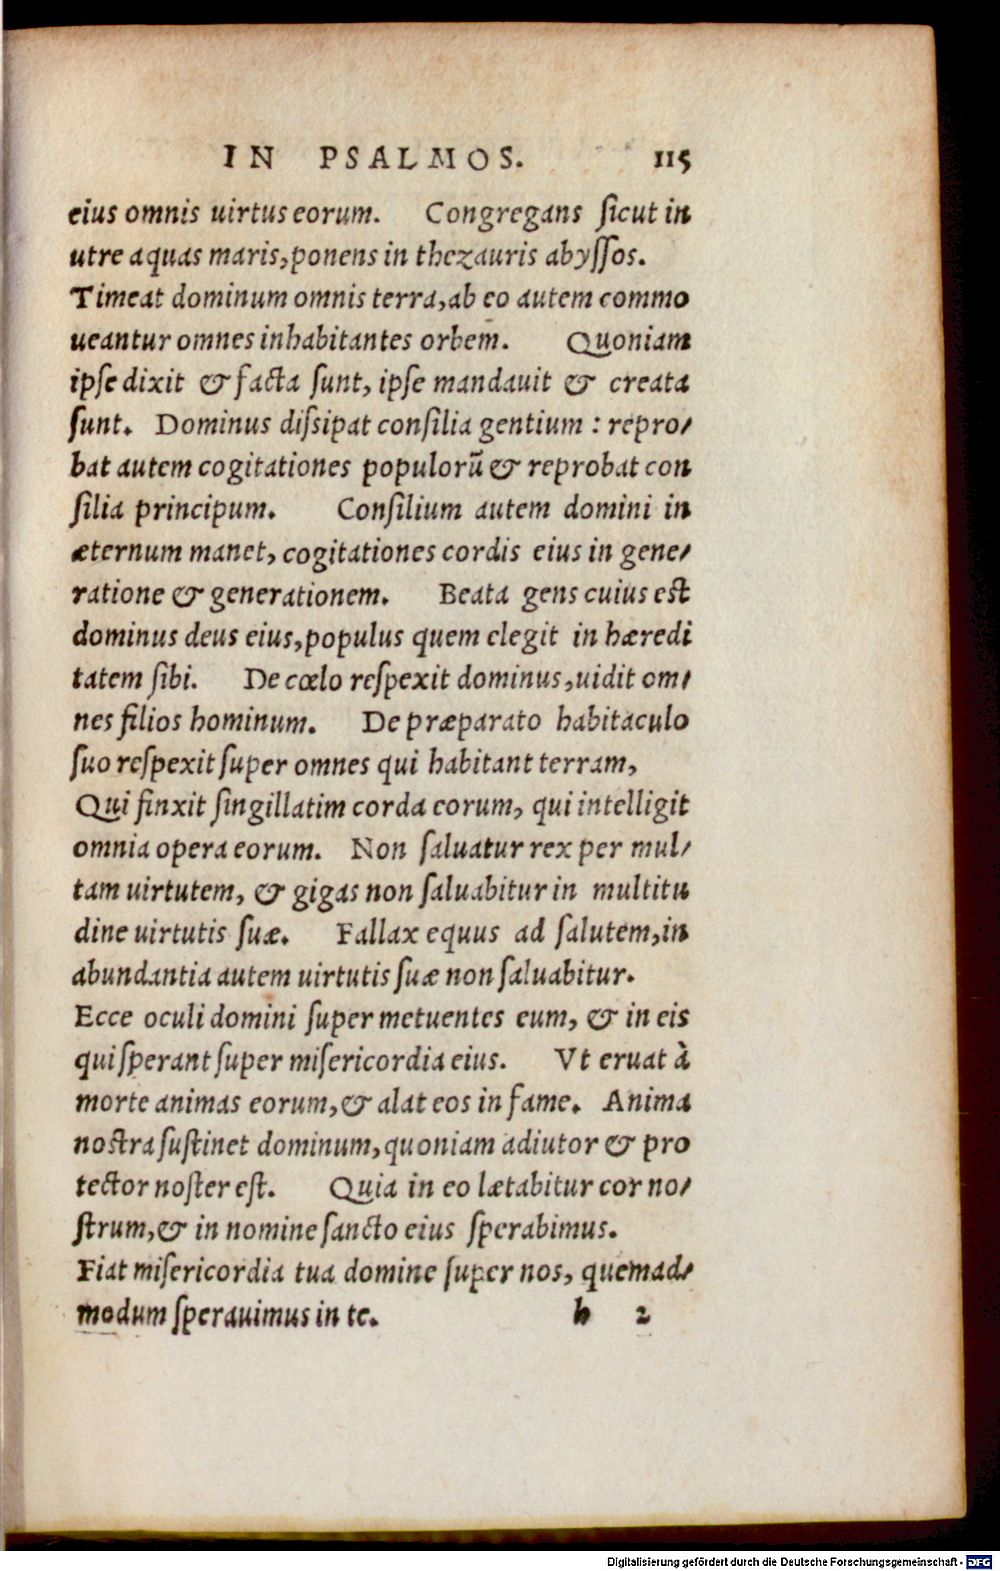 IN PSALMOS. 115
eius omnis uirtus eorum. Congregans ſicut in
utre aquas maris, ponens in thezauris abyſſos.
Timeat dominum omnis terra, ab eo autem commo
ueantur omnes inhabitantes orbem. Quoniam
ipſe dixit & facta ſunt, ipſe mandauit & creata
ſunt. Dominus diſsipat conſilia gentium : repro/
bat autem cogitationes populorū & reprobat con
ſilia principum. Conſilium autem domini in
æternum manet, cogitationes cordis eius in gene/
ratione & generationem. Beata gens cuius eſt
dominus deus eius, populus quem elegit in hæredi
tatem ſibi. De cœlo reſpexit dominus, uidit om/
nes filios hominum. De præparato habitaculo
ſuo reſpexit ſuper omnes qui habitant terram,
Qui finxit ſingillatim corda eorum, qui intelligit
omnia opera eorum. Non ſaluatur rex per mul/
tam uirtutem, & gigas non ſaluabitur in multitu
dine uirtutis ſuæ. Fallax equus ad ſalutem, in
abundantia autem uirtutis ſuæ non ſaluabitur.
Ecce oculi domini ſuper metuentes eum, & in eis
qui ſperant ſuper miſericordia eius. Vt eruat à
morte animas eorum, & alat eos in fame. Anima
noſtra ſuſtinet dominum, quoniam adiutor & pro
tector noſter eſt. Quia in eo lætabitur cor no/
ſtrum, & in nomine ſancto eius ſperabimus.
Fiat miſericordia tua domine ſuper nos, quemad/
modum ſperauimus in te. h 2
Digitalisierung gefördert durch die Deutsche Forschungsgemeinschaft - DFG